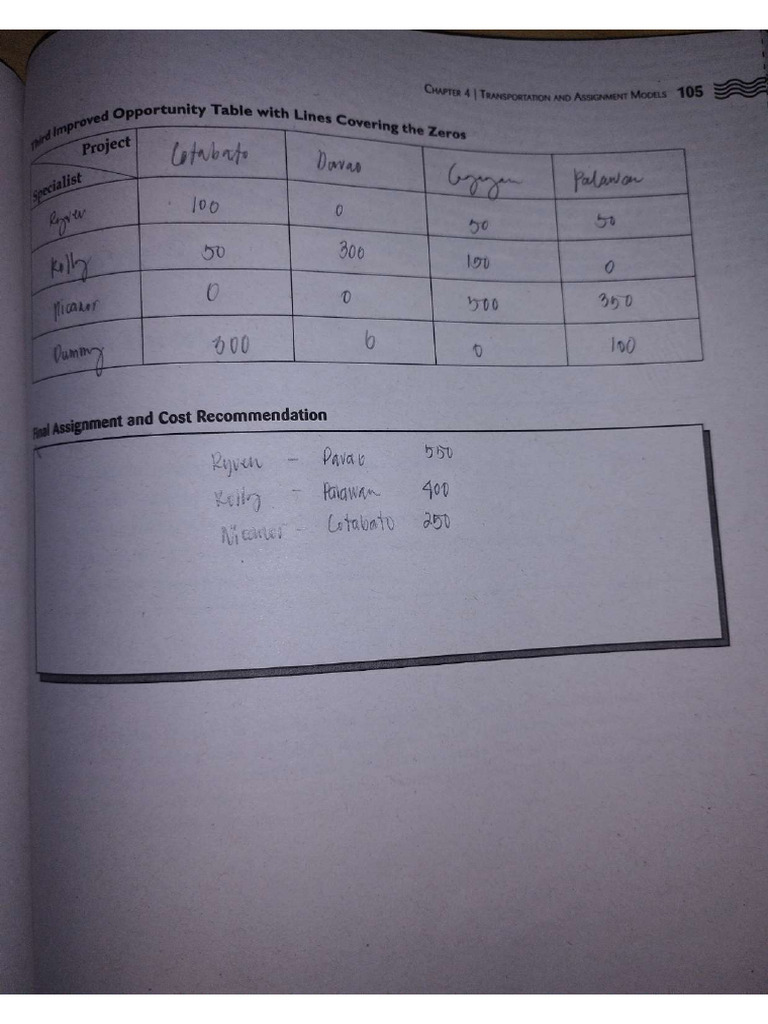 CHAPTER 4 | TRANSPORTATION AND ASSIGNMENT MODELS 105
Third Improved Opportunity Table with Lines Covering the Zeros
Project Cotabato Davao Palawan
Specialist
Ryven 100 0 50 50
Kelly 50 300 150 0
Nicanor 0 0 500 350
Dummy 300 0 0 100
Final Assignment and Cost Recommendation
Ryven - Davao 550
Kelly - Palawan 400
Nicanor - Cotabato 250